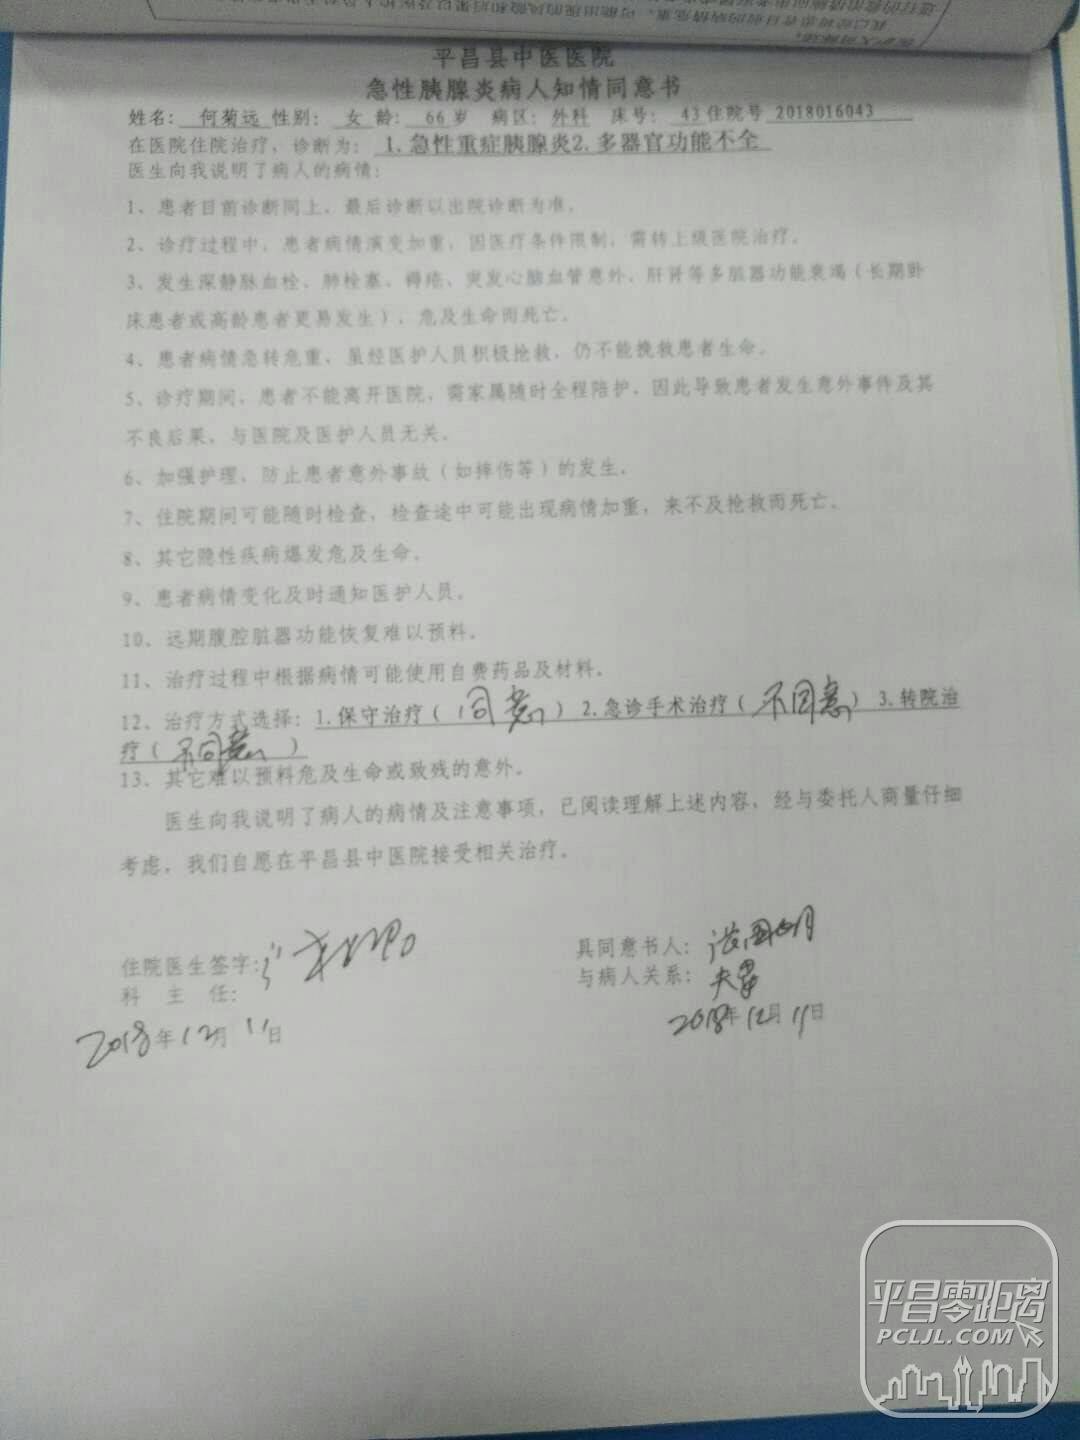 平昌县中医医院
急性胰腺炎病人知情同意书
姓名: 何菊远 性别: 女 龄: 66岁 病区: 外科 床号: 43 住院号 2018016043
在医院住院治疗，诊断为: 1.急性重症胰腺炎2.多器官功能不全
医生向我说明了病人的病情:
1、患者目前诊断同上，最后诊断以出院诊断为准。
2、诊疗过程中，患者病情演变加重，因医疗条件限制，需转上级医院治疗。
3、发生深静脉血栓、肺栓塞、褥疮、突发心脑血管意外、肝肾等多脏器功能衰竭（长期卧
床患者或高龄患者更易发生），危及生命而死亡。
4、患者病情急转危重，虽经医护人员积极抢救，仍不能挽救患者生命。
5、诊疗期间，患者不能离开医院，需家属随时全程陪护，因此导致患者发生意外事件及其
不良后果，与医院及医护人员无关。
6、加强护理，防止患者意外事故（如摔伤等）的发生。
7、住院期间可能随时检查，检查途中可能出现病情加重，来不及抢救而死亡。
8、其它隐性疾病爆发危及生命。
9、患者病情变化及时通知医护人员。
10、远期腹腔脏器功能恢复难以预料。
11、治疗过程中根据病情可能使用自费药品及材料。
12、治疗方式选择: 1.保守治疗（同意）2.急诊手术治疗（不同意）3.转院治
疗（不同意）
13、其它难以预料危及生命或致残的意外。
医生向我说明了病人的病情及注意事项，已阅读理解上述内容，经与委托人商量仔细
考虑，我们自愿在平昌县中医院接受相关治疗。
住院医生签字:
具同意书人:
科 主 任:
与病人关系: 夫妻
2018年12月11日
2018年12月11日
平昌零距离
PCLJL.COM